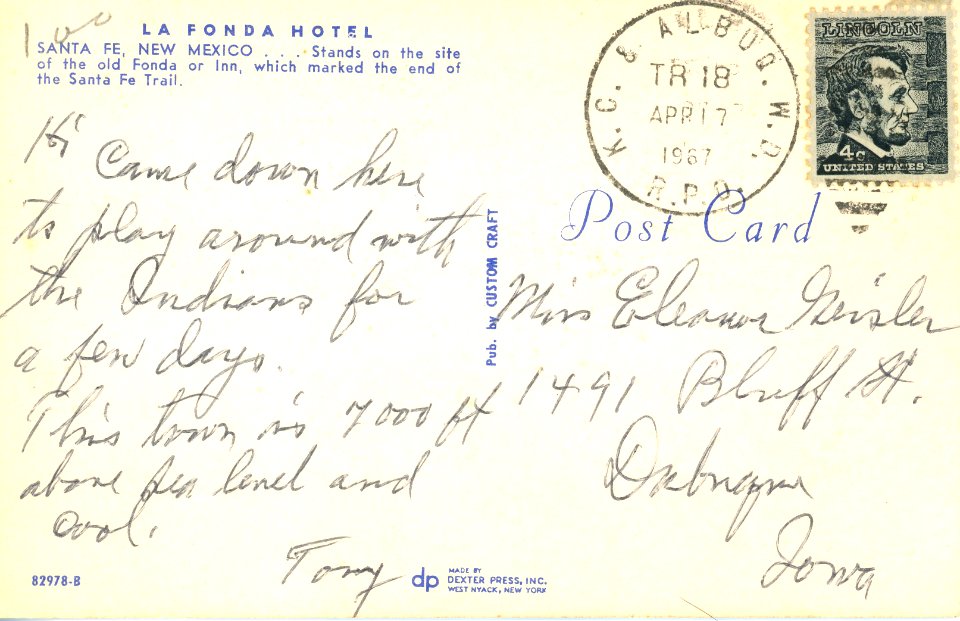 1 00
LA FONDA HOTEL
SANTA FE, NEW MEXICO . . . Stands on the site
of the old Fonda or Inn, which marked the end of
the Santa Fe Trail.
Hi
Came down here
to play around with
the Indians for
a few days.
This town is 7000 ft
above sea level and
cool.
Tony
82978-B
dp
MADE BY
DEXTER PRESS, INC.
WEST NYACK, NEW YORK
Pub. by CUSTOM CRAFT
K.C. & ALBUQ. W.D.
TR 18
APR 17
1967
R.P.O.
LINCOLN
4c
UNITED STATES
Post Card
Miss Eleanor Geisler
1491 Bluff St.
Dubuque
Iowa